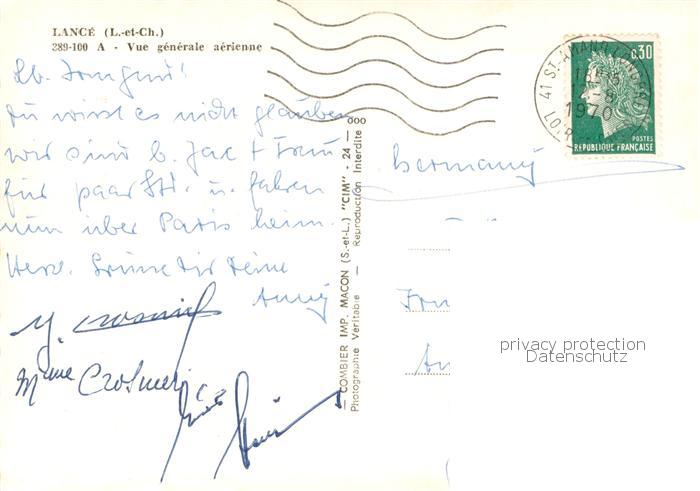 LANCÉ (L.-et-Ch.)
289-100 A - Vue générale aérienne
Lb. Irmgard!
Du wirst es nicht glauben
wir sind b. Jac + Frau
für paar Std. u. fahren
nun über Paris heim.
Herz. Grüße Dir Deine
Anny
Mme
COMBIER IMP. MACON (S.-et-L.) "CIM" - 24 - 000
Photographie Véritable - Reproduction Interdite
41 ST-AMAND
1970
LOIR
0.30
POSTES
RÉPUBLIQUE FRANÇAISE
Germany
privacy protection
Datenschutz